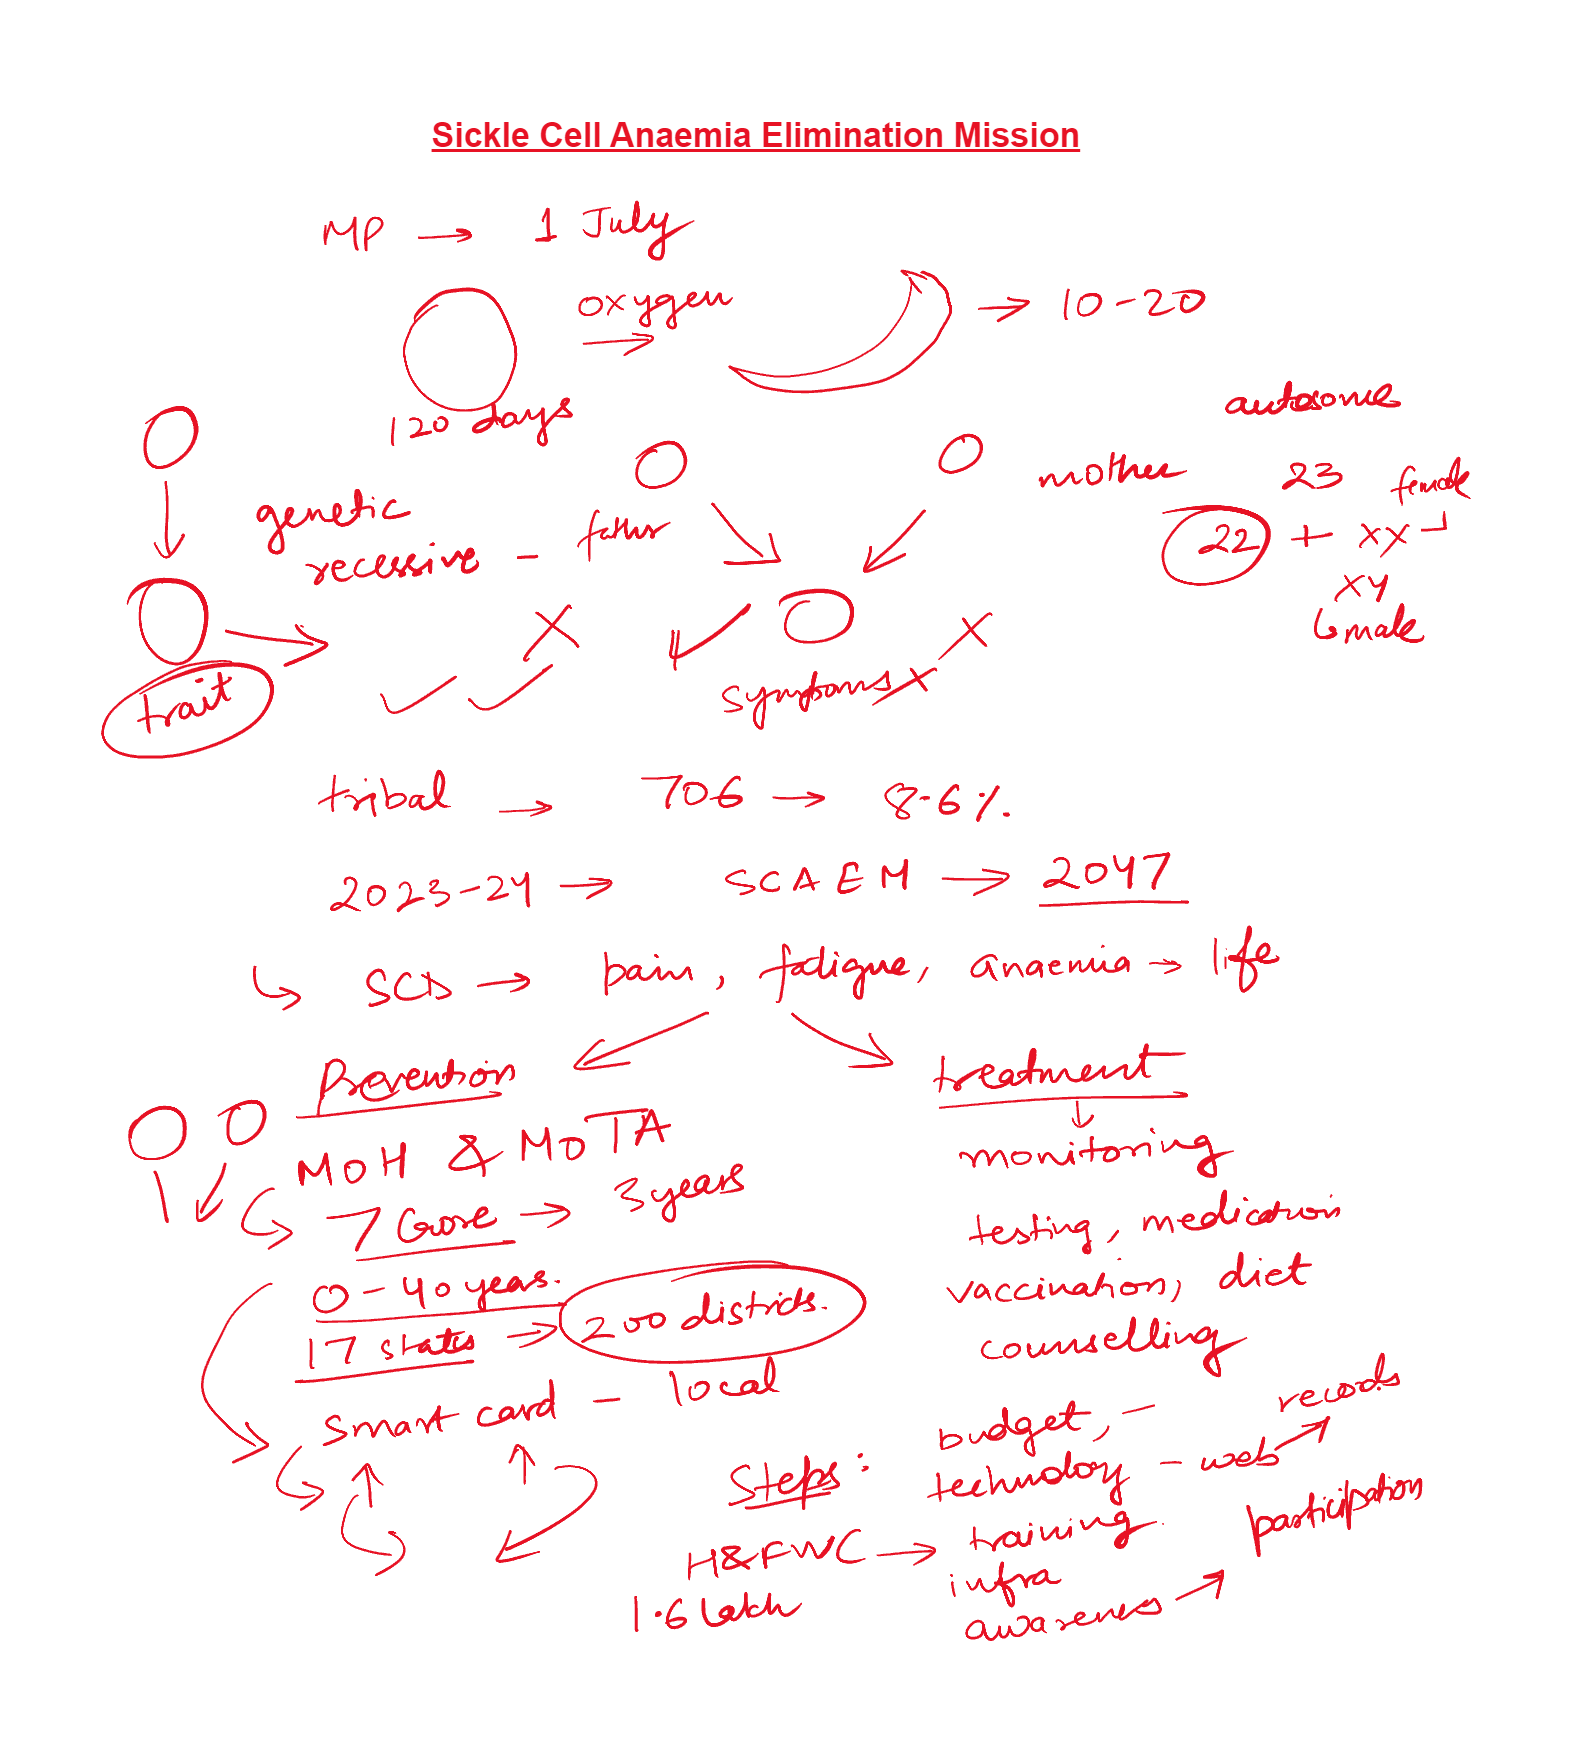 Sickle Cell Anaemia Elimination Mission
MP → 1 July
oxygen → 10-20
120 days
autosome
mother 23 female
genetic father 22 + xx
recessive - xy
male
trait symptoms x
tribal → 706 → 8.6%.
2023-24 → SCAEM → 2047
SCD → pain, fatigue, anaemia → life
Prevention treatment
MOH & MOTA monitoring
7 Crore → 3 years testing, medication
0-40 years. vaccination, diet
17 states → 200 districts. counselling
smart card - local
budget, - records
Steps: technology - web
H&FWC → training participation
1.6 Lakh infra
awareness →